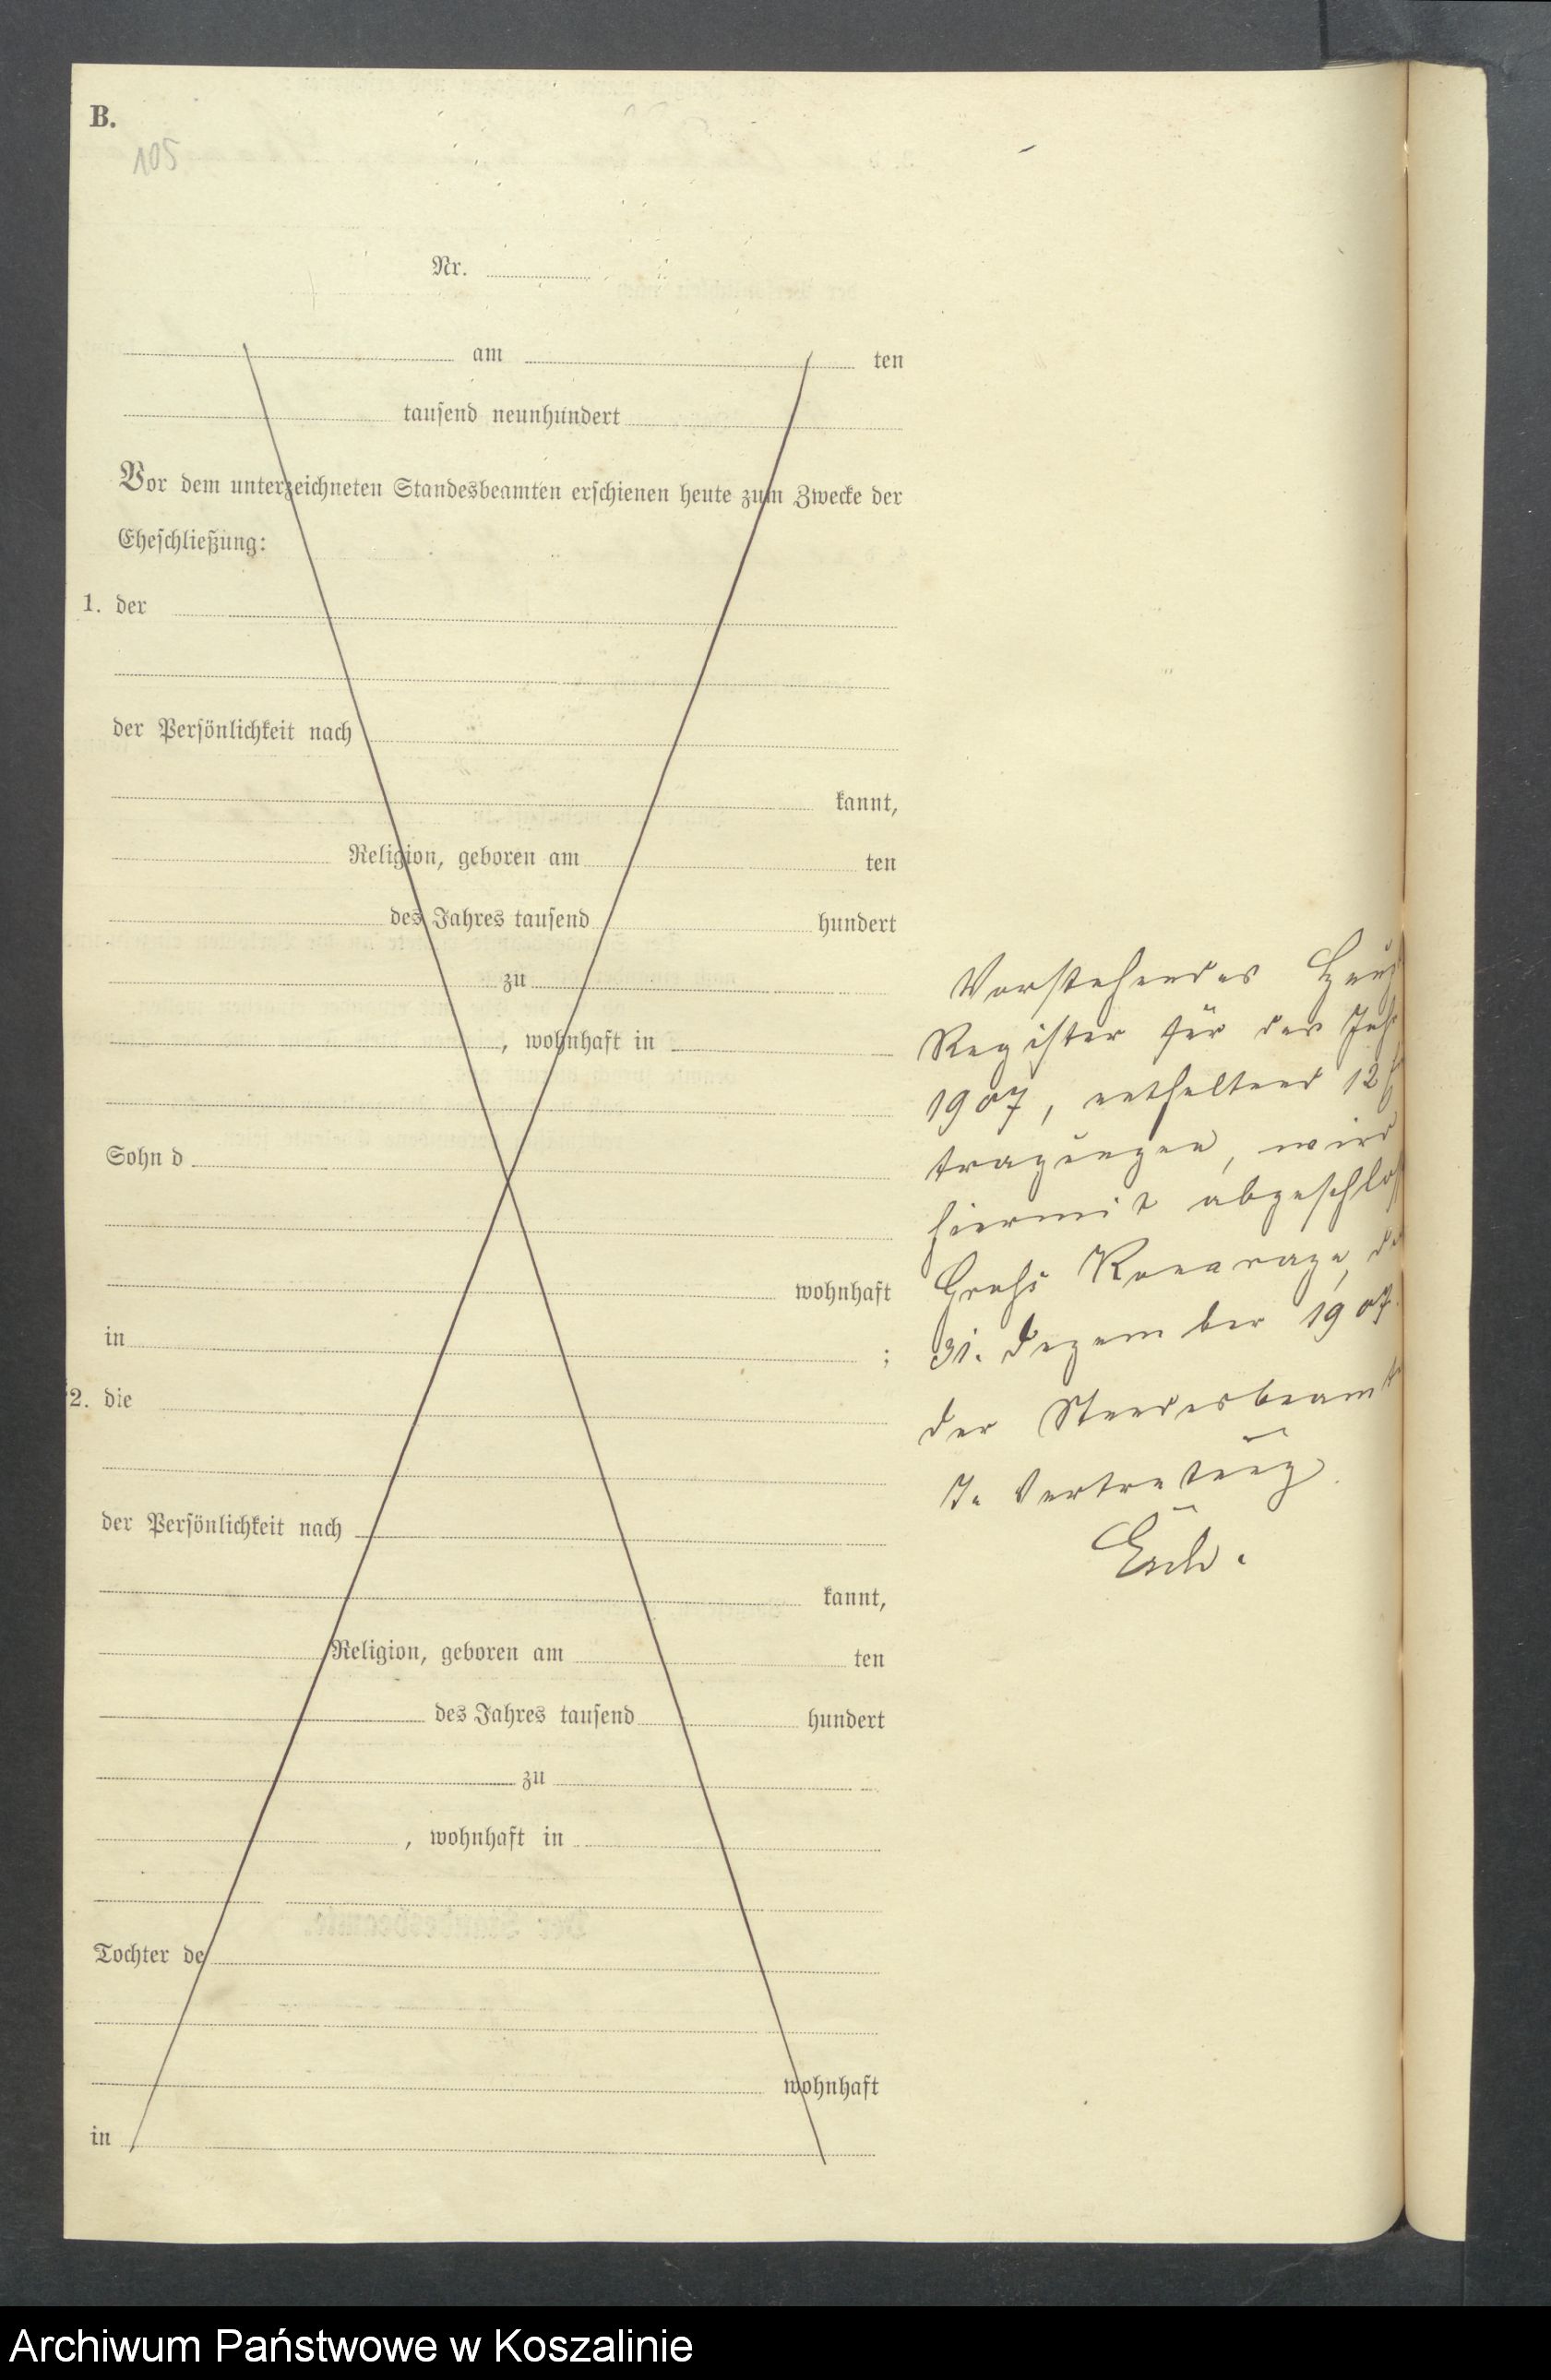 B.
105
Nr.
am ten
tausend neunhundert
Vor dem unterzeichneten Standesbeamten erschienen heute zum Zwecke der
Eheschließung:
1. der
der Persönlichkeit nach
kannt,
Religion, geboren am ten
des Jahres tausend hundert
zu
, wohnhaft in
Sohn d
wohnhaft
in ;
2. die
der Persönlichkeit nach
kannt,
Religion, geboren am ten
des Jahres tausend hundert
zu
, wohnhaft in
Tochter de
wohnhaft
in
Vorstehendes
Register für das Jah
1907, enthaltend 12
tragungen, wird
hiermit abgeschlos
Groß
31. Dezember 1907.
Der Standesbeamte
In Vertretung
Archiwum Państwowe w Koszalinie